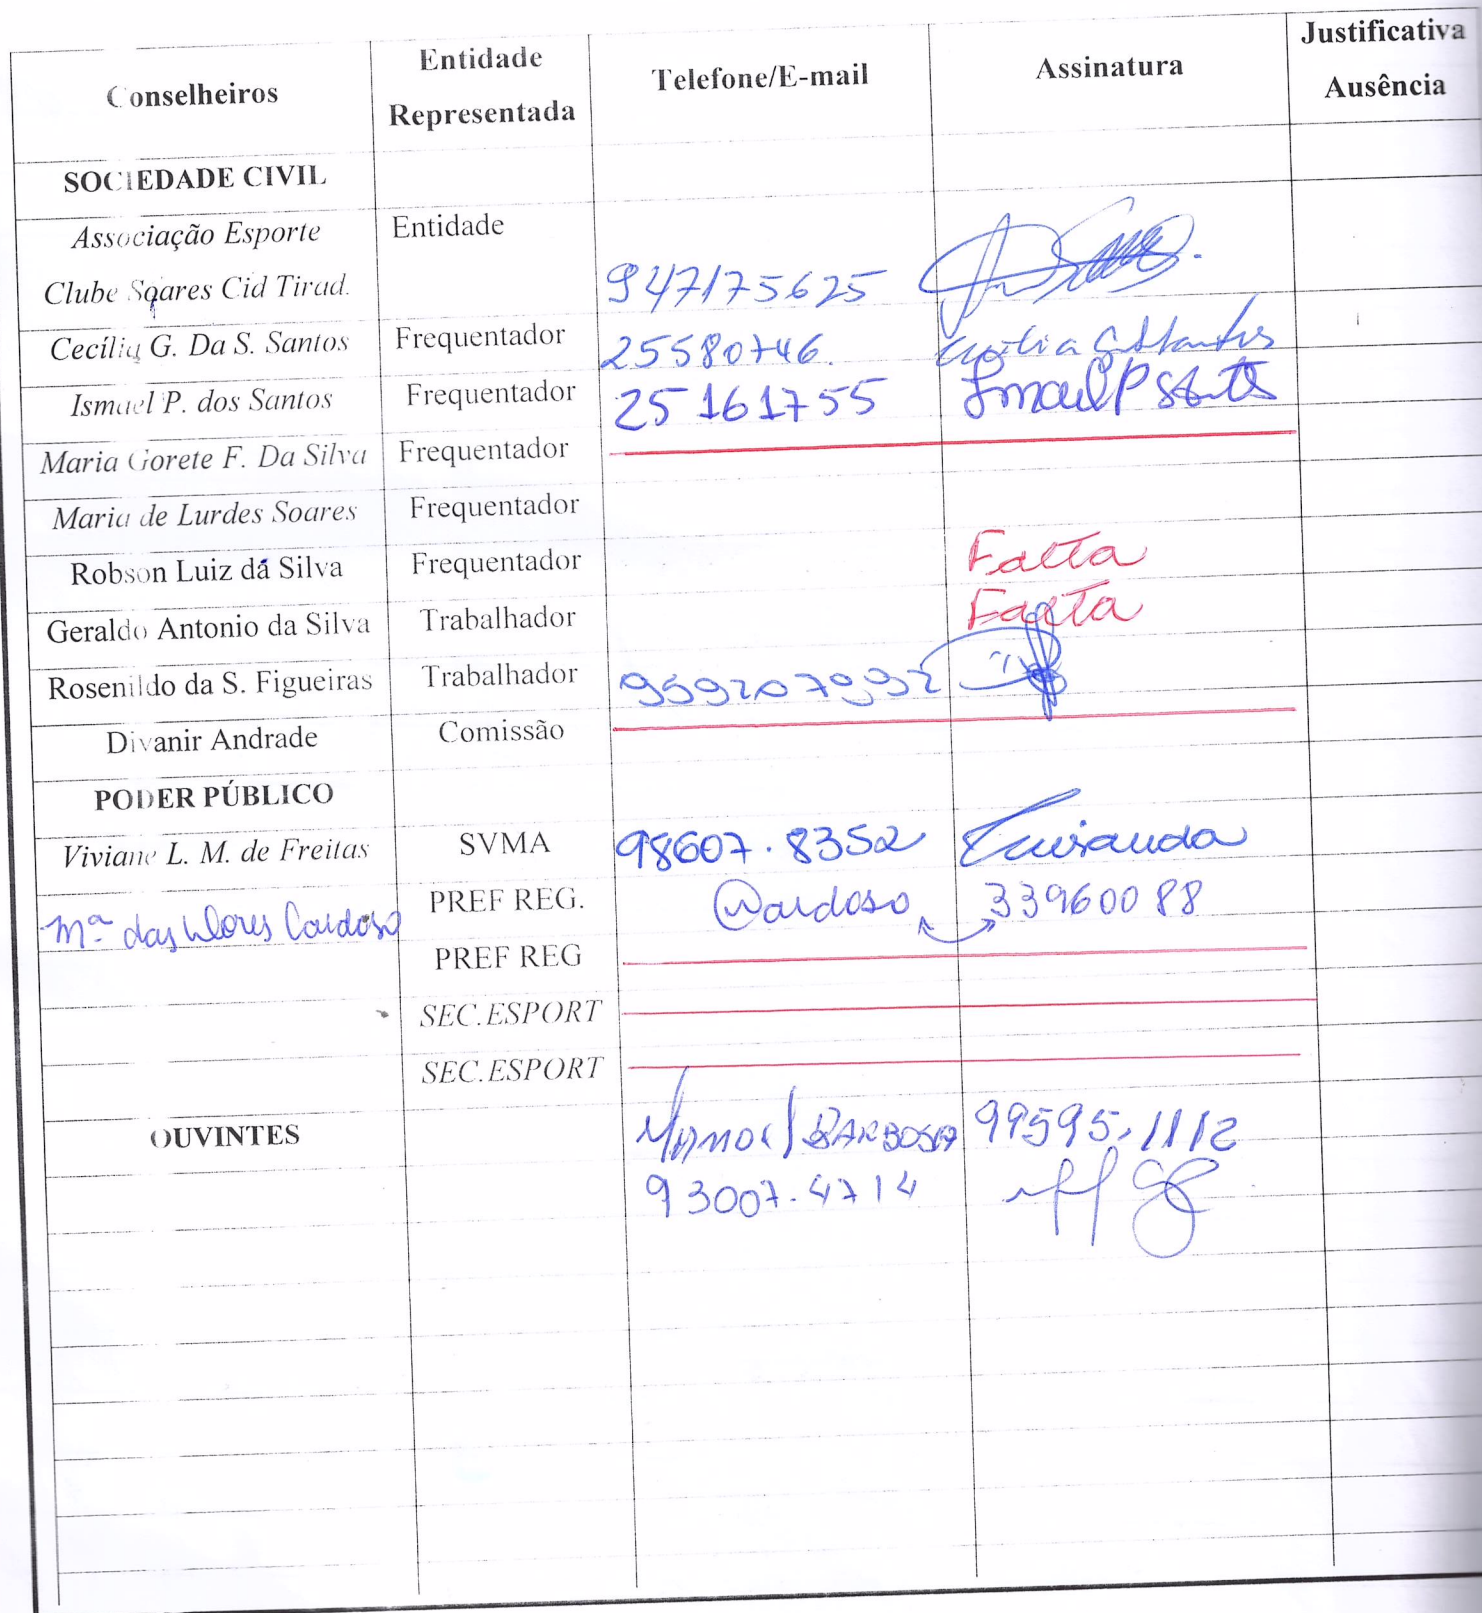 Conselheiros Entidade Representada Telefone/E-mail Assinatura Justificativa Ausência
SOCIEDADE CIVIL
Associação Esporte Entidade
Clube Soares Cid Tirad. 947175625
Cecília G. Da S. Santos Frequentador 25580746.
Ismael P. dos Santos Frequentador 25161755 Ismael P Santos
Maria Gorete F. Da Silva Frequentador
Maria de Lurdes Soares Frequentador
Robson Luiz da Silva Frequentador Falta
Geraldo Antonio da Silva Trabalhador Falta
Rosenildo da S. Figueiras Trabalhador 959207992
Divanir Andrade Comissão
PODER PÚBLICO
Viviane L. M. de Freitas SVMA 98607.8352
Mª das Dores Cardoso PREF REG. Cardoso 33960088
PREF REG
SEC.ESPORT
SEC.ESPORT
OUVINTES BARBOSA 99595.1112
93007.4714